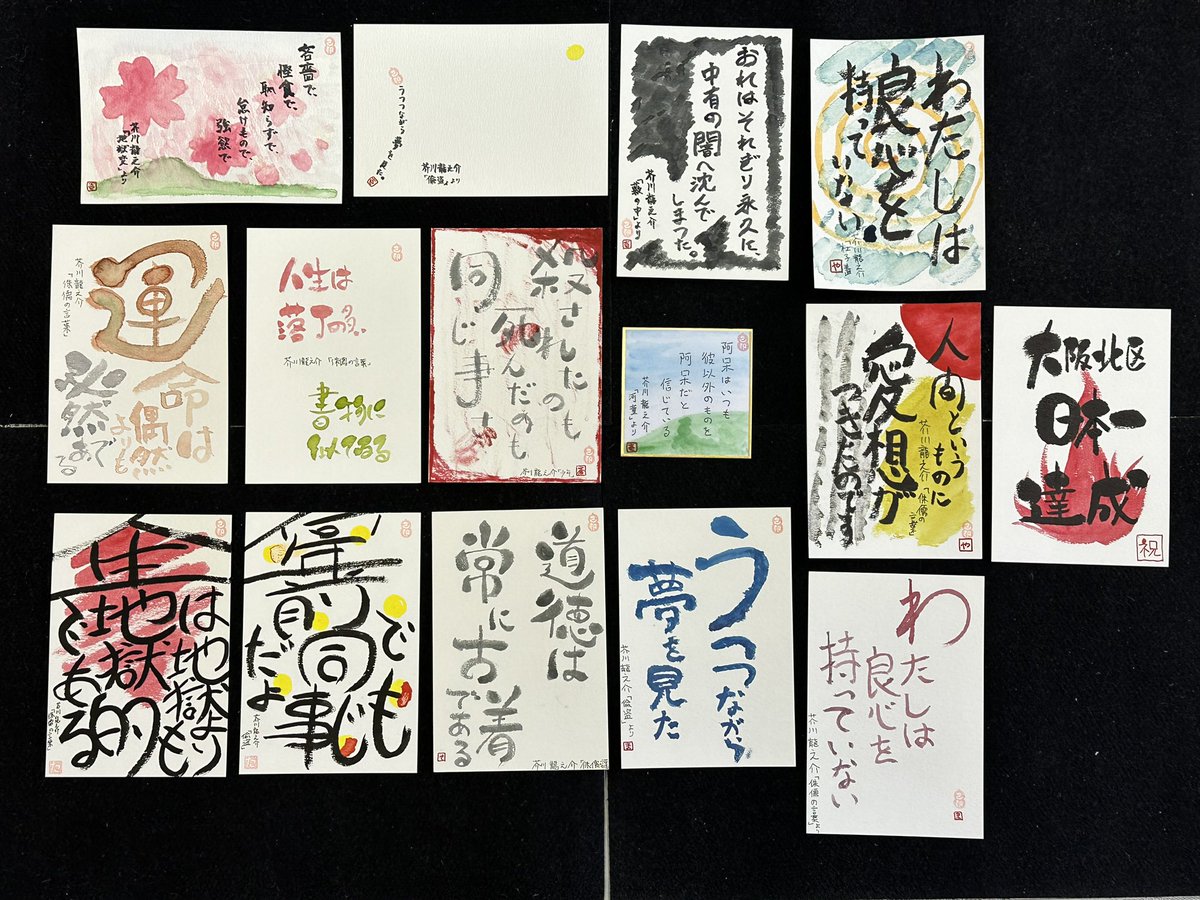 吝嗇で、
慳貪で、
恥知らずで、
怠けもので、
強慾で
芥川龍之介
「地獄変」より
うつつながら夢を見た。
芥川龍之介
「偸盗」より
おれはそれぎり永久に、
中有の闇へ沈んで
しまつた。
芥川龍之介
「藪の中」より
わたしは
良心を
持って
いない
芥川龍之介
運
命は
偶然
よりも
必然で
ある
芥川龍之介
「侏儒の言葉」
人生は
落丁の多い
芥川龍之介「侏儒の言葉」
書物に
似てゐる
殺されたのも
死んだのも
同じ事さ
芥川龍之介
阿呆はいつも
彼以外のものを
阿呆だと
信じている
芥川龍之介
「河童」より
人間という
ものに
愛想が
つきたのです
芥川龍之介
大阪北区
日本一
達成
祝
人生
は地獄より
も地獄的
である
芥川龍之介
「侏儒の言葉」
でも
同じ
事
だよ
芥川龍之介
道徳は
常に古着
である
芥川龍之介
うつつながら
夢を見た
芥川龍之介「偸盗」より
わたしは
良心を
持っていない
芥川龍之介「侏儒の言葉」より